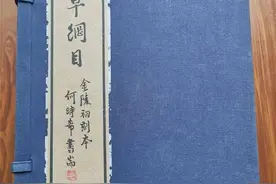 草綱目
金陵初刻本
何時希書耑